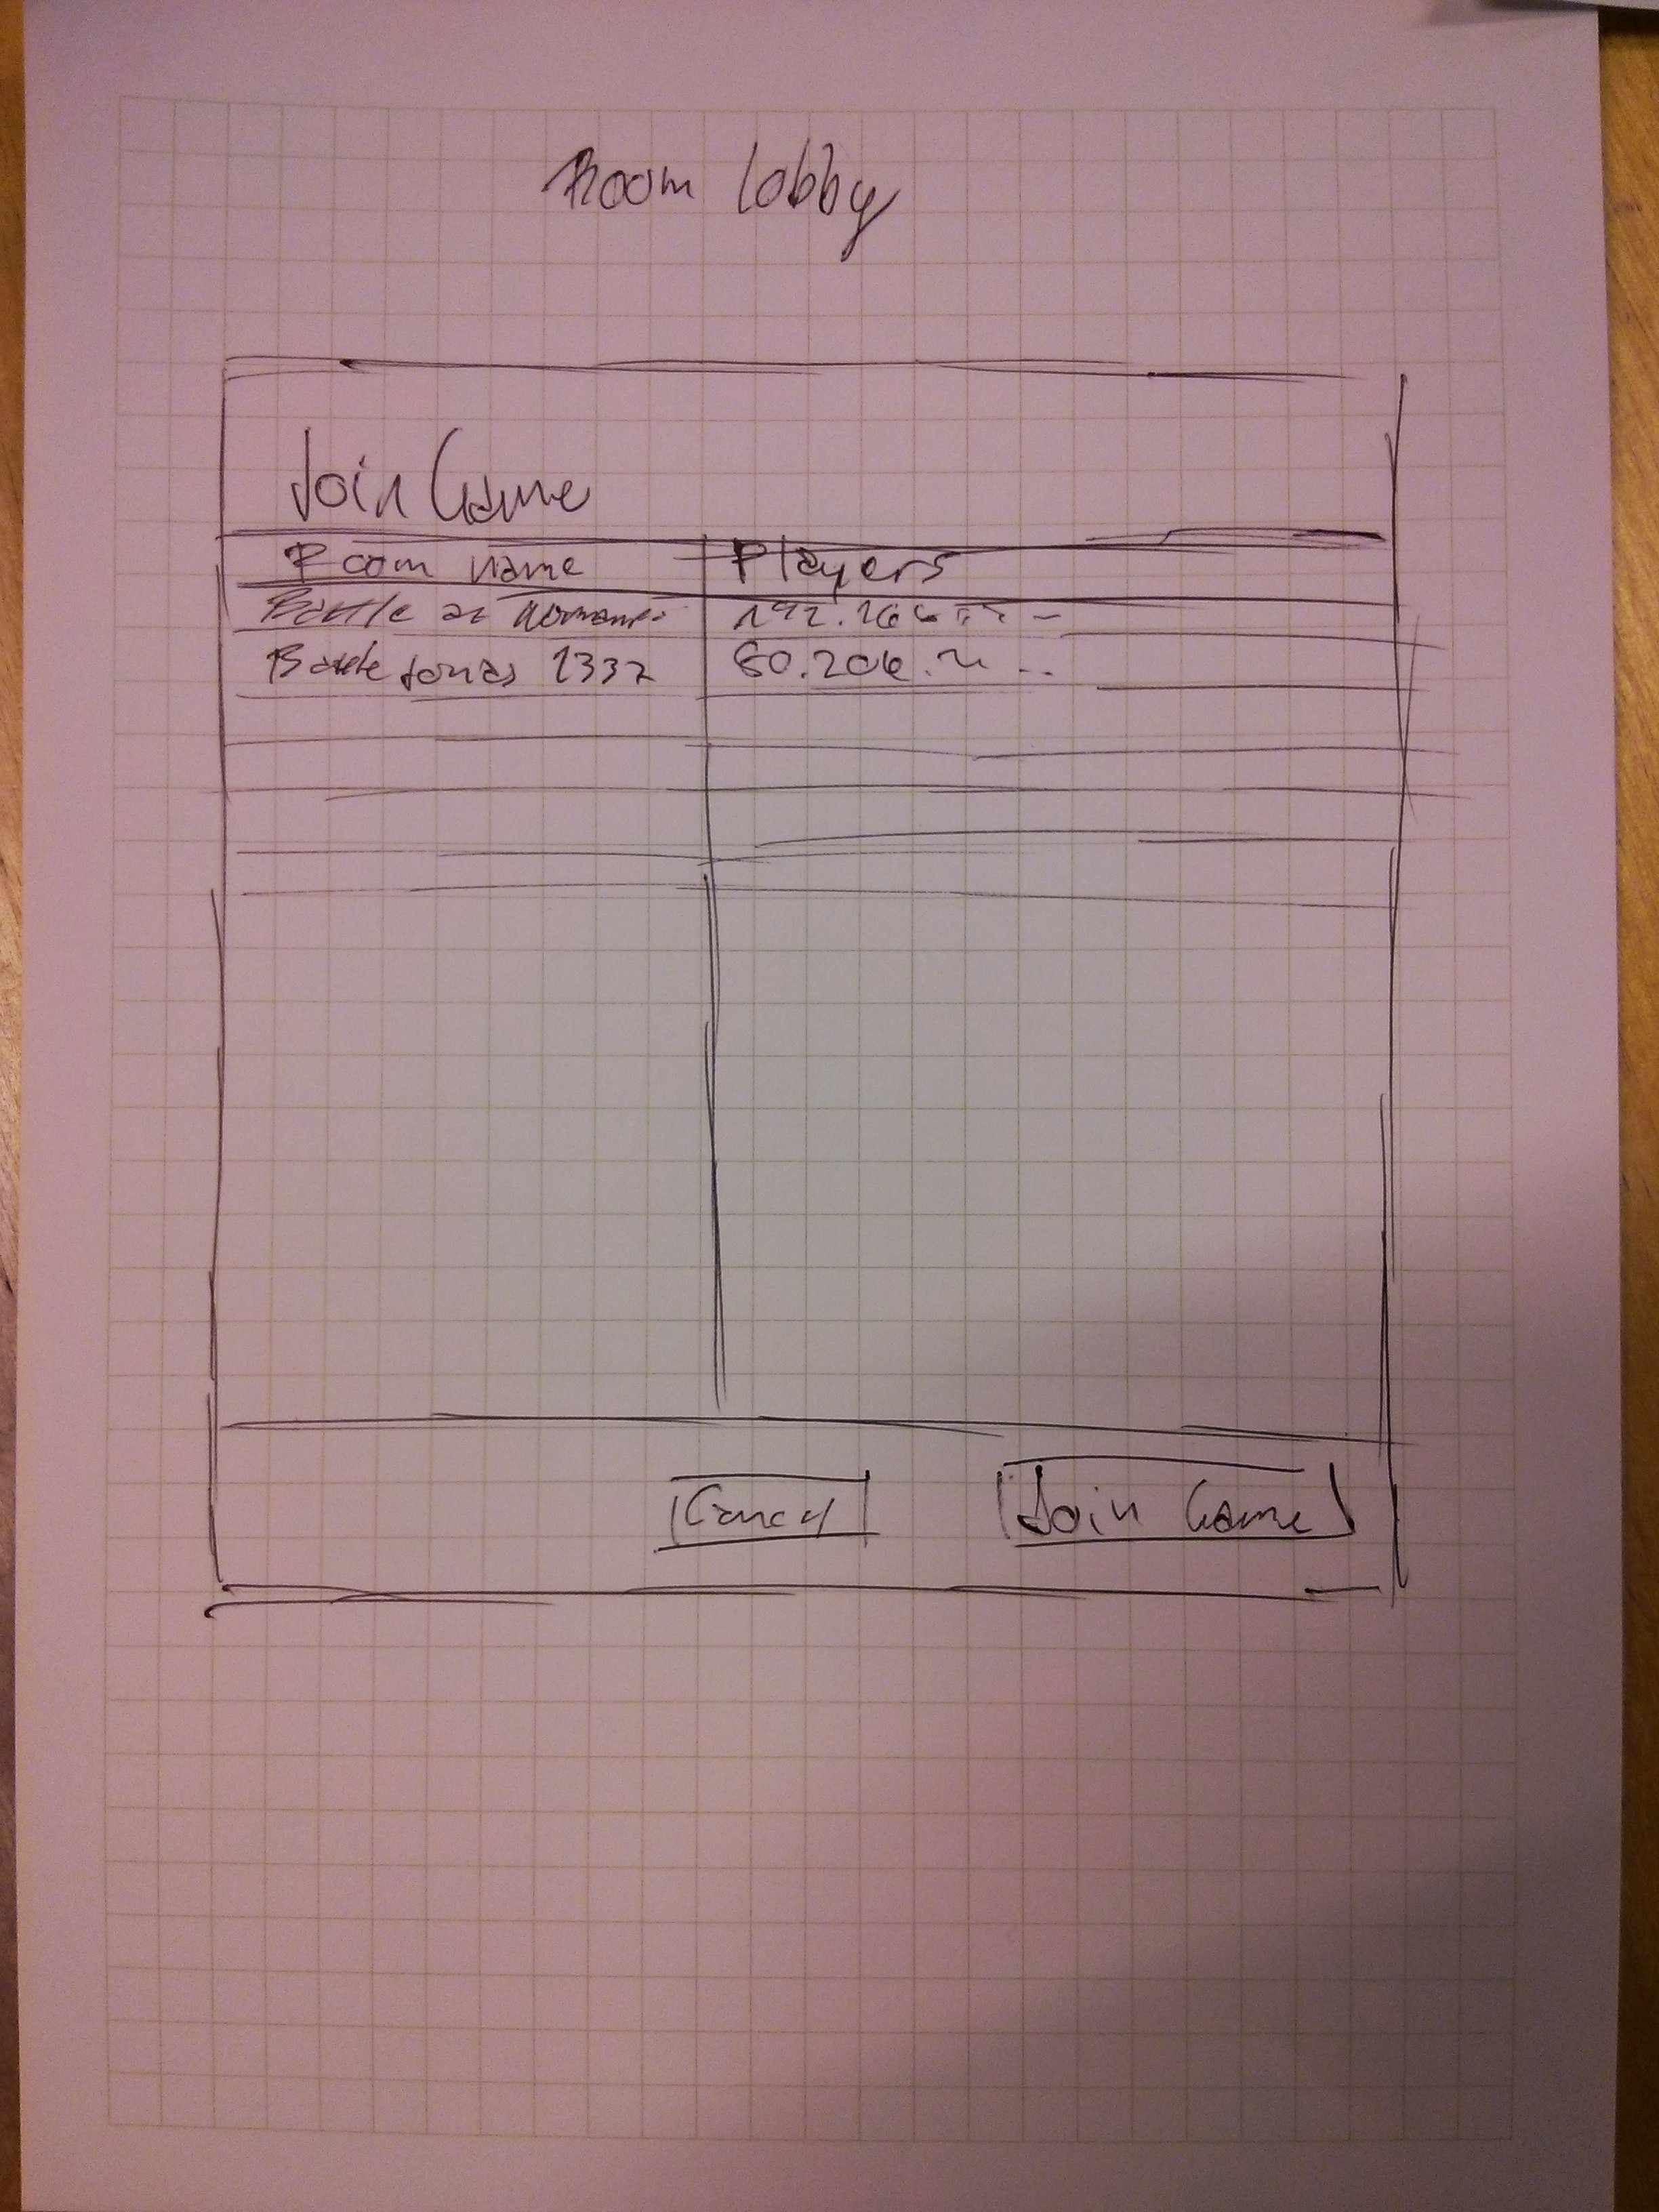 Room lobby
Join Game
Room name Players
Battle at 192.168
Battle 1337 80.206.
Cancel Join Game